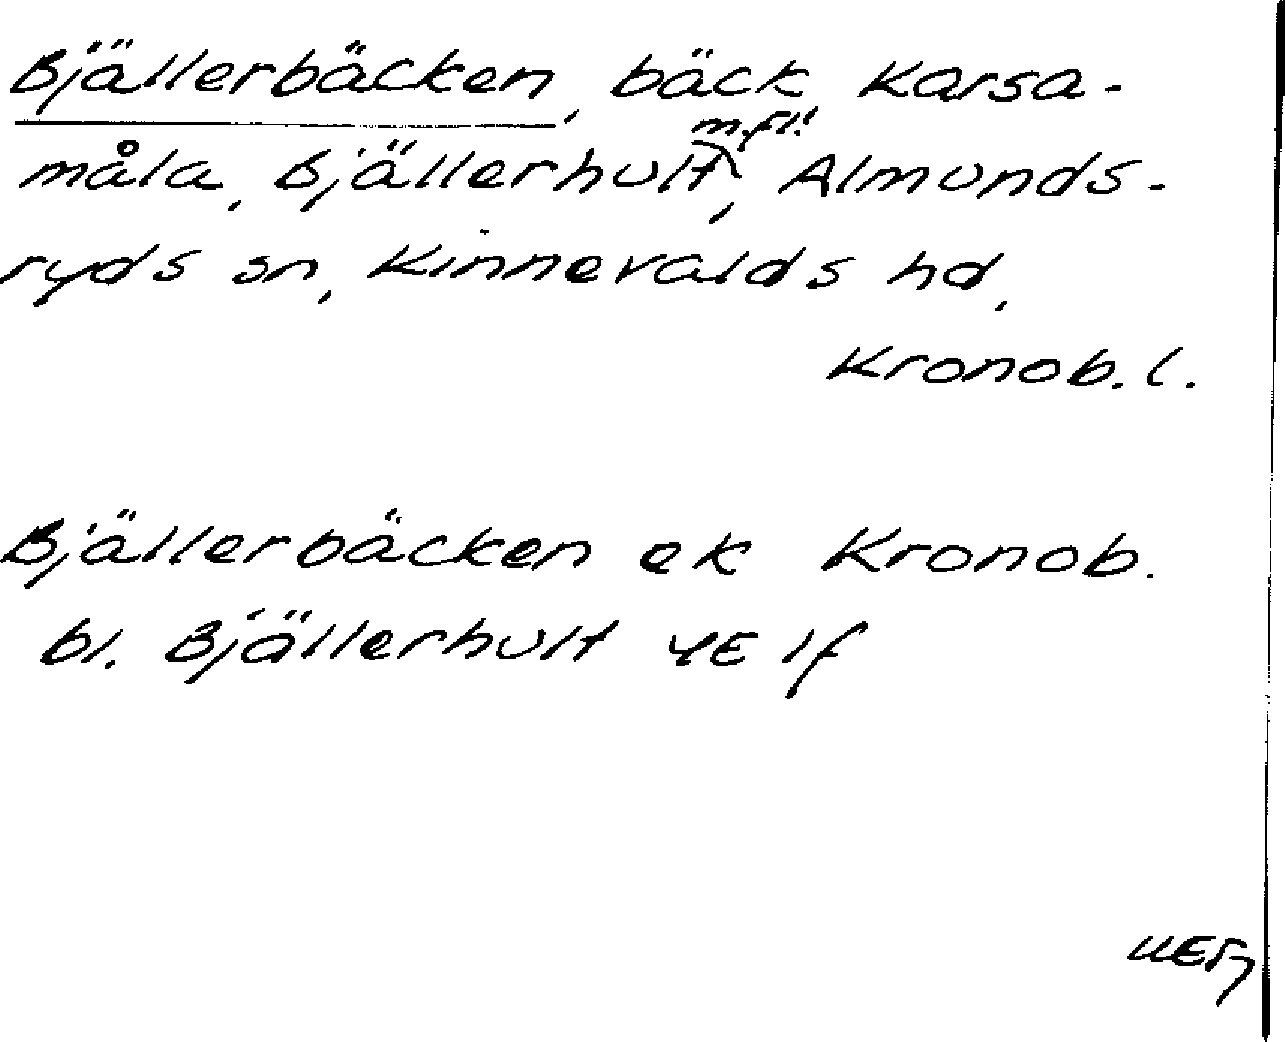 Bjällerbäcken, bäck, Karsa-
måla, Bjällerhult m.fl., Almunds-
ryds sn, Kinnevalds hd,
Kronob. l.
Bjällerbäcken ek Kronob.
bl. Bjällerhult 4E 1f